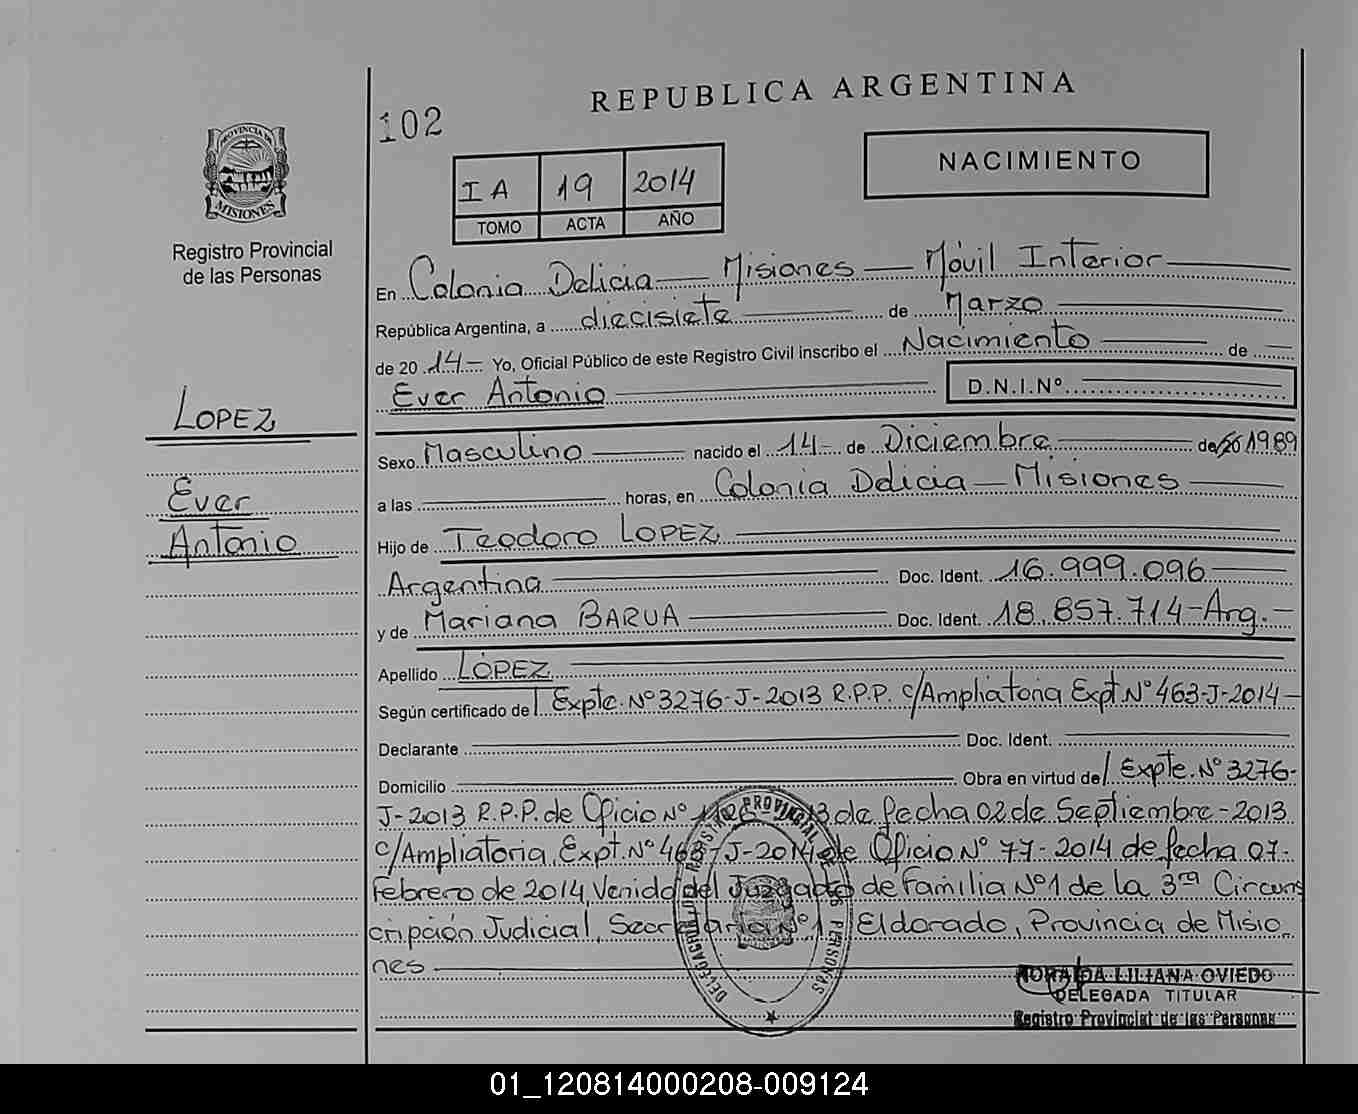 REPUBLICA ARGENTINA
102
NACIMIENTO
PROVINCIA DE
MISIONES
Registro Provincial
de las Personas
IA 19 2014
TOMO ACTA AÑO
En Colonia Delicia — Misiones — Móvil Interior
República Argentina, a diecisiete de Marzo
de 2014- Yo, Oficial Público de este Registro Civil inscribo el Nacimiento de
Ever Antonio D.N.I.Nº
LOPEZ
Ever
Antonio
Sexo Masculino nacido el 14- de Diciembre de 1989
a las horas, en Colonia Delicia — Misiones
Hijo de Teodoro LOPEZ
Argentina Doc. Ident. 16.999.096
y de Mariana BARUA Doc. Ident. 18.857.714-Arg.-
Apellido LÓPEZ
Según certificado de Expte. Nº 3276-J-2013 R.P.P. c/Ampliatoria Expt Nº 463-J-2014-
Declarante Doc. Ident.
Domicilio Obra en virtud de Expte. Nº 3276-
J-2013 R.P.P. de Oficio Nº 13 de fecha 02 de Septiembre-2013
c/Ampliatoria, Expt. Nº 463-J-2014 de Oficio Nº 77-2014 de fecha 07-
Febrero de 2014, Venido del Juzgado de Familia Nº1 de la 3ra Circuns
cripción Judicial, Secretaria Nº1, Eldorado, Provincia de Misio
nes
DELEGACION REGISTRO PROVINCIAL DE LAS PERSONAS
LILIANA OVIEDO
DELEGADA TITULAR
Registro Provincial de las Personas
01_120814000208-009124